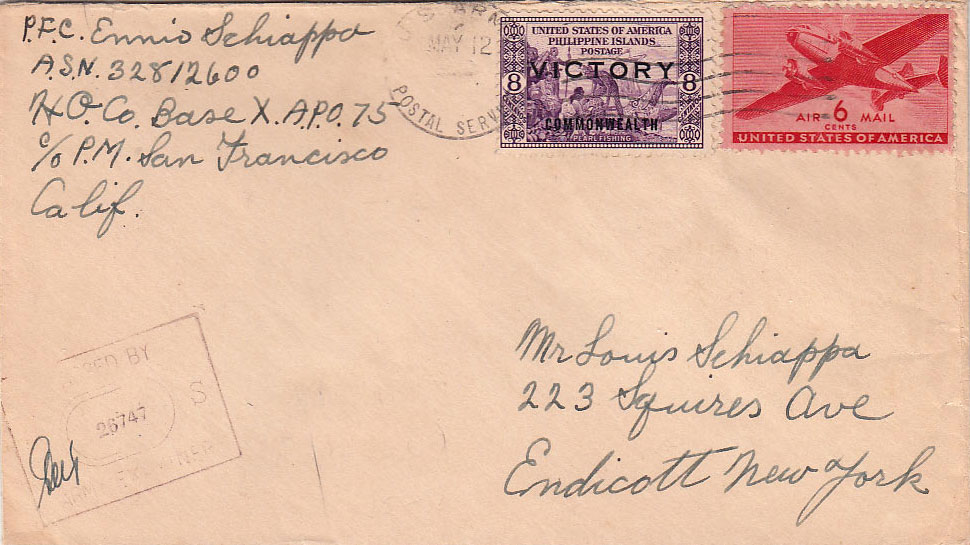 P.F.C. Ennio Schiappa
A.S.N. 32812600
HQ. Co. Base X. A.P.O. 75
c/o P.M. San Francisco
Calif.
MAY 12
POSTAL SERVI
UNITED STATES OF AMERICA
PHILIPPINE ISLANDS
POSTAGE
8 VICTORY 8
COMMONWEALTH
PEARL FISHING
AIR 6 MAIL
CENTS
UNITED STATES OF AMERICA
Mr Louis Schiappa
223 Squires Ave
Endicott New York
BY
26747
S